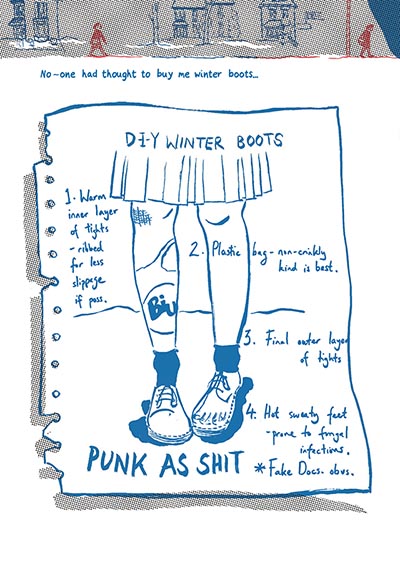 No-one had thought to buy me winter boots...
D-I-Y WINTER BOOTS
1. Warm
inner layer
of tights
- ribbed
for less
slippage
if poss.
2. Plastic bag - non-crinkly
kind is best.
Biu
3. Final outer layer
of tights
4. Hot sweaty feet
- prone to fungal
infections.
PUNK AS SHIT
*Fake Docs. obvs.